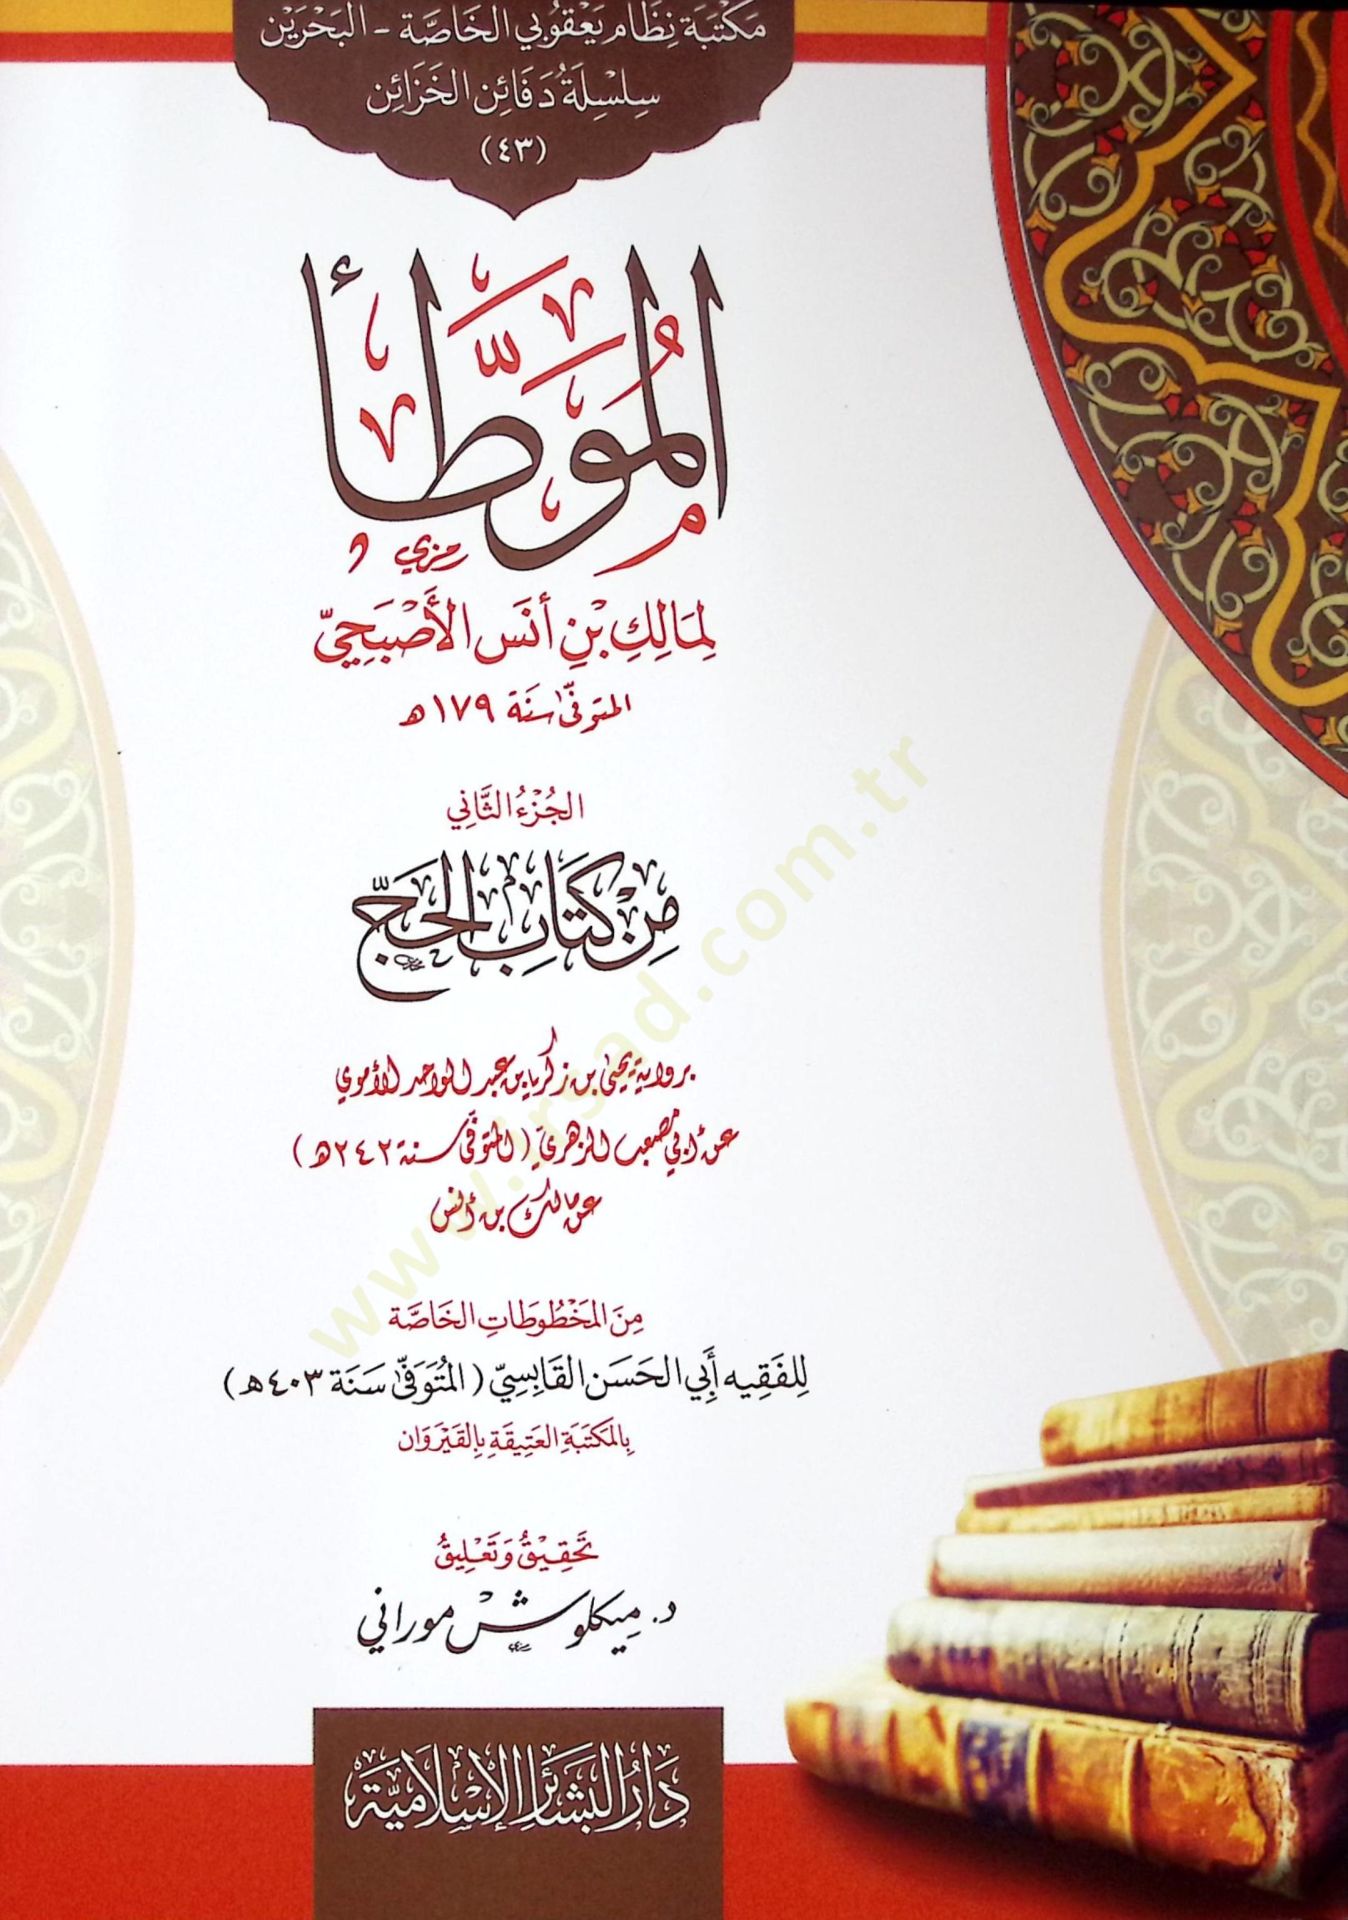 مَكْتَبَة نِظَام يَعْقُوبِي الخَاصَّة - البَحْرَيْن
سِلْسِلَةُ دَفَائِن الخَزَائِن
(٤٣)
المُوَطَّأ
لِمَالِكِ بْنِ أَنَس الأَصْبَحِيّ
المتوفّى سَنَة ١٧٩ هـ
الجُزْءُ الثَّانِي
مِنْ كِتَابِ الحَجّ
برواية يحيى بن زكريا بن عبد الواحد الأموي
عن أبي مصعب الزهري (المتوفّى سنة ٢٤٢ هـ)
عن مالك بن أنس
مِنَ المَخْطُوطَاتِ الخَاصَّة
لِلفَقِيه أَبِي الحَسَن القَابِسِيّ (المُتَوَفَّى سَنَة ٤٠٣ هـ)
بِالمَكْتَبَةِ العَتِيقَةِ بِالقَيْرَوَان
تَحْقِيقُ وَتَعْلِيقُ
د. مِيكلوش موراني
دَارُ البَشَائِر الإِسْلَامِيَّة
www.irsad.com.tr